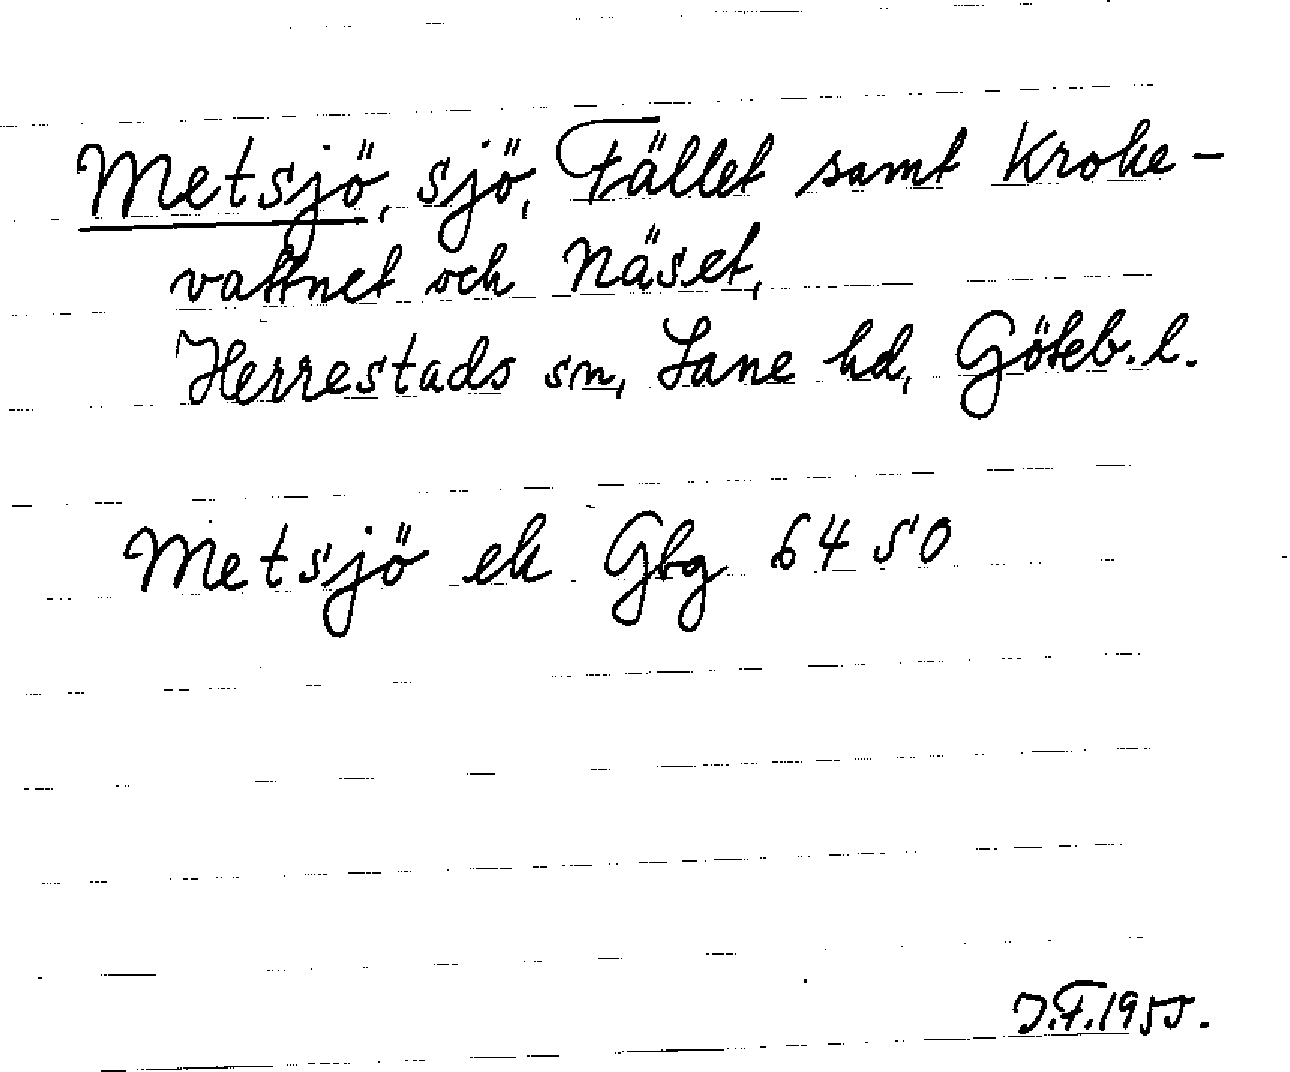 Metsjö, sjö, Fället samt Kroke-
vattnet och Näset,
Herrestads sn, Lane hd, Göteb. l.
Metsjö ek Gbg 6450
J.F. 1955.